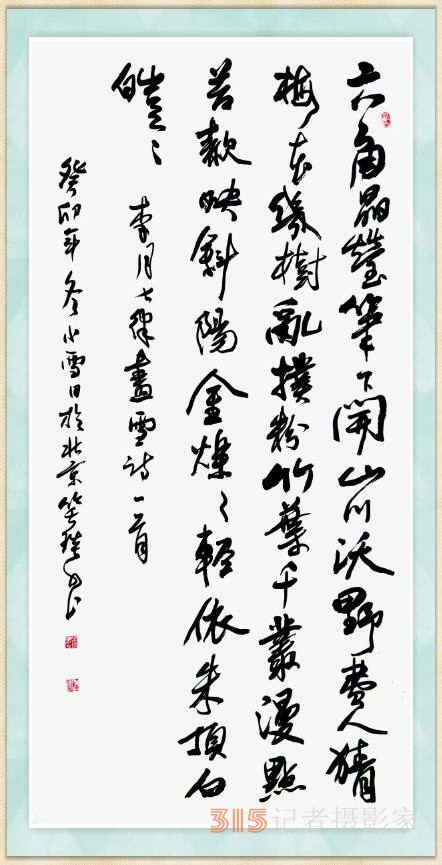 六角晶瑩筆下開山川沃野費人猜
梅花幾樹亂撲粉竹葉千叢漫點
苔映斜陽金爍々輕依朱頂白
皚々 李月七律畫雪詩一首
癸卯年冬小雪日於北京
315记者摄影家